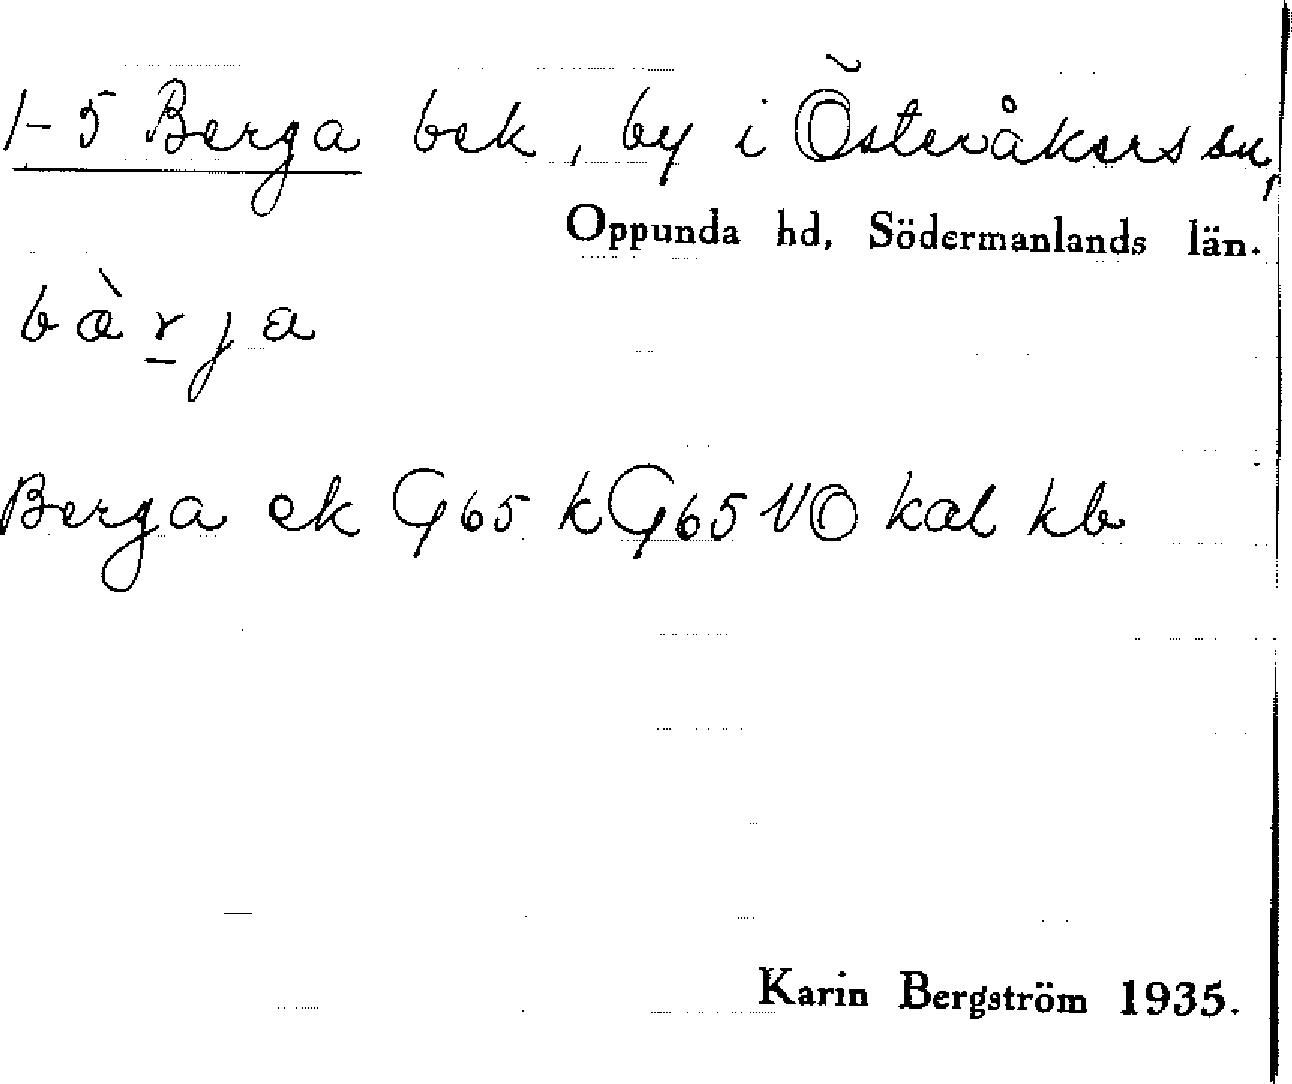 1-5 Berga bek, by i Österåkers sn,
Oppunda hd, Södermanlands län.
bæ̀rja
Berga ek G65 kG65 NO kal kb
Karin Bergström 1935.